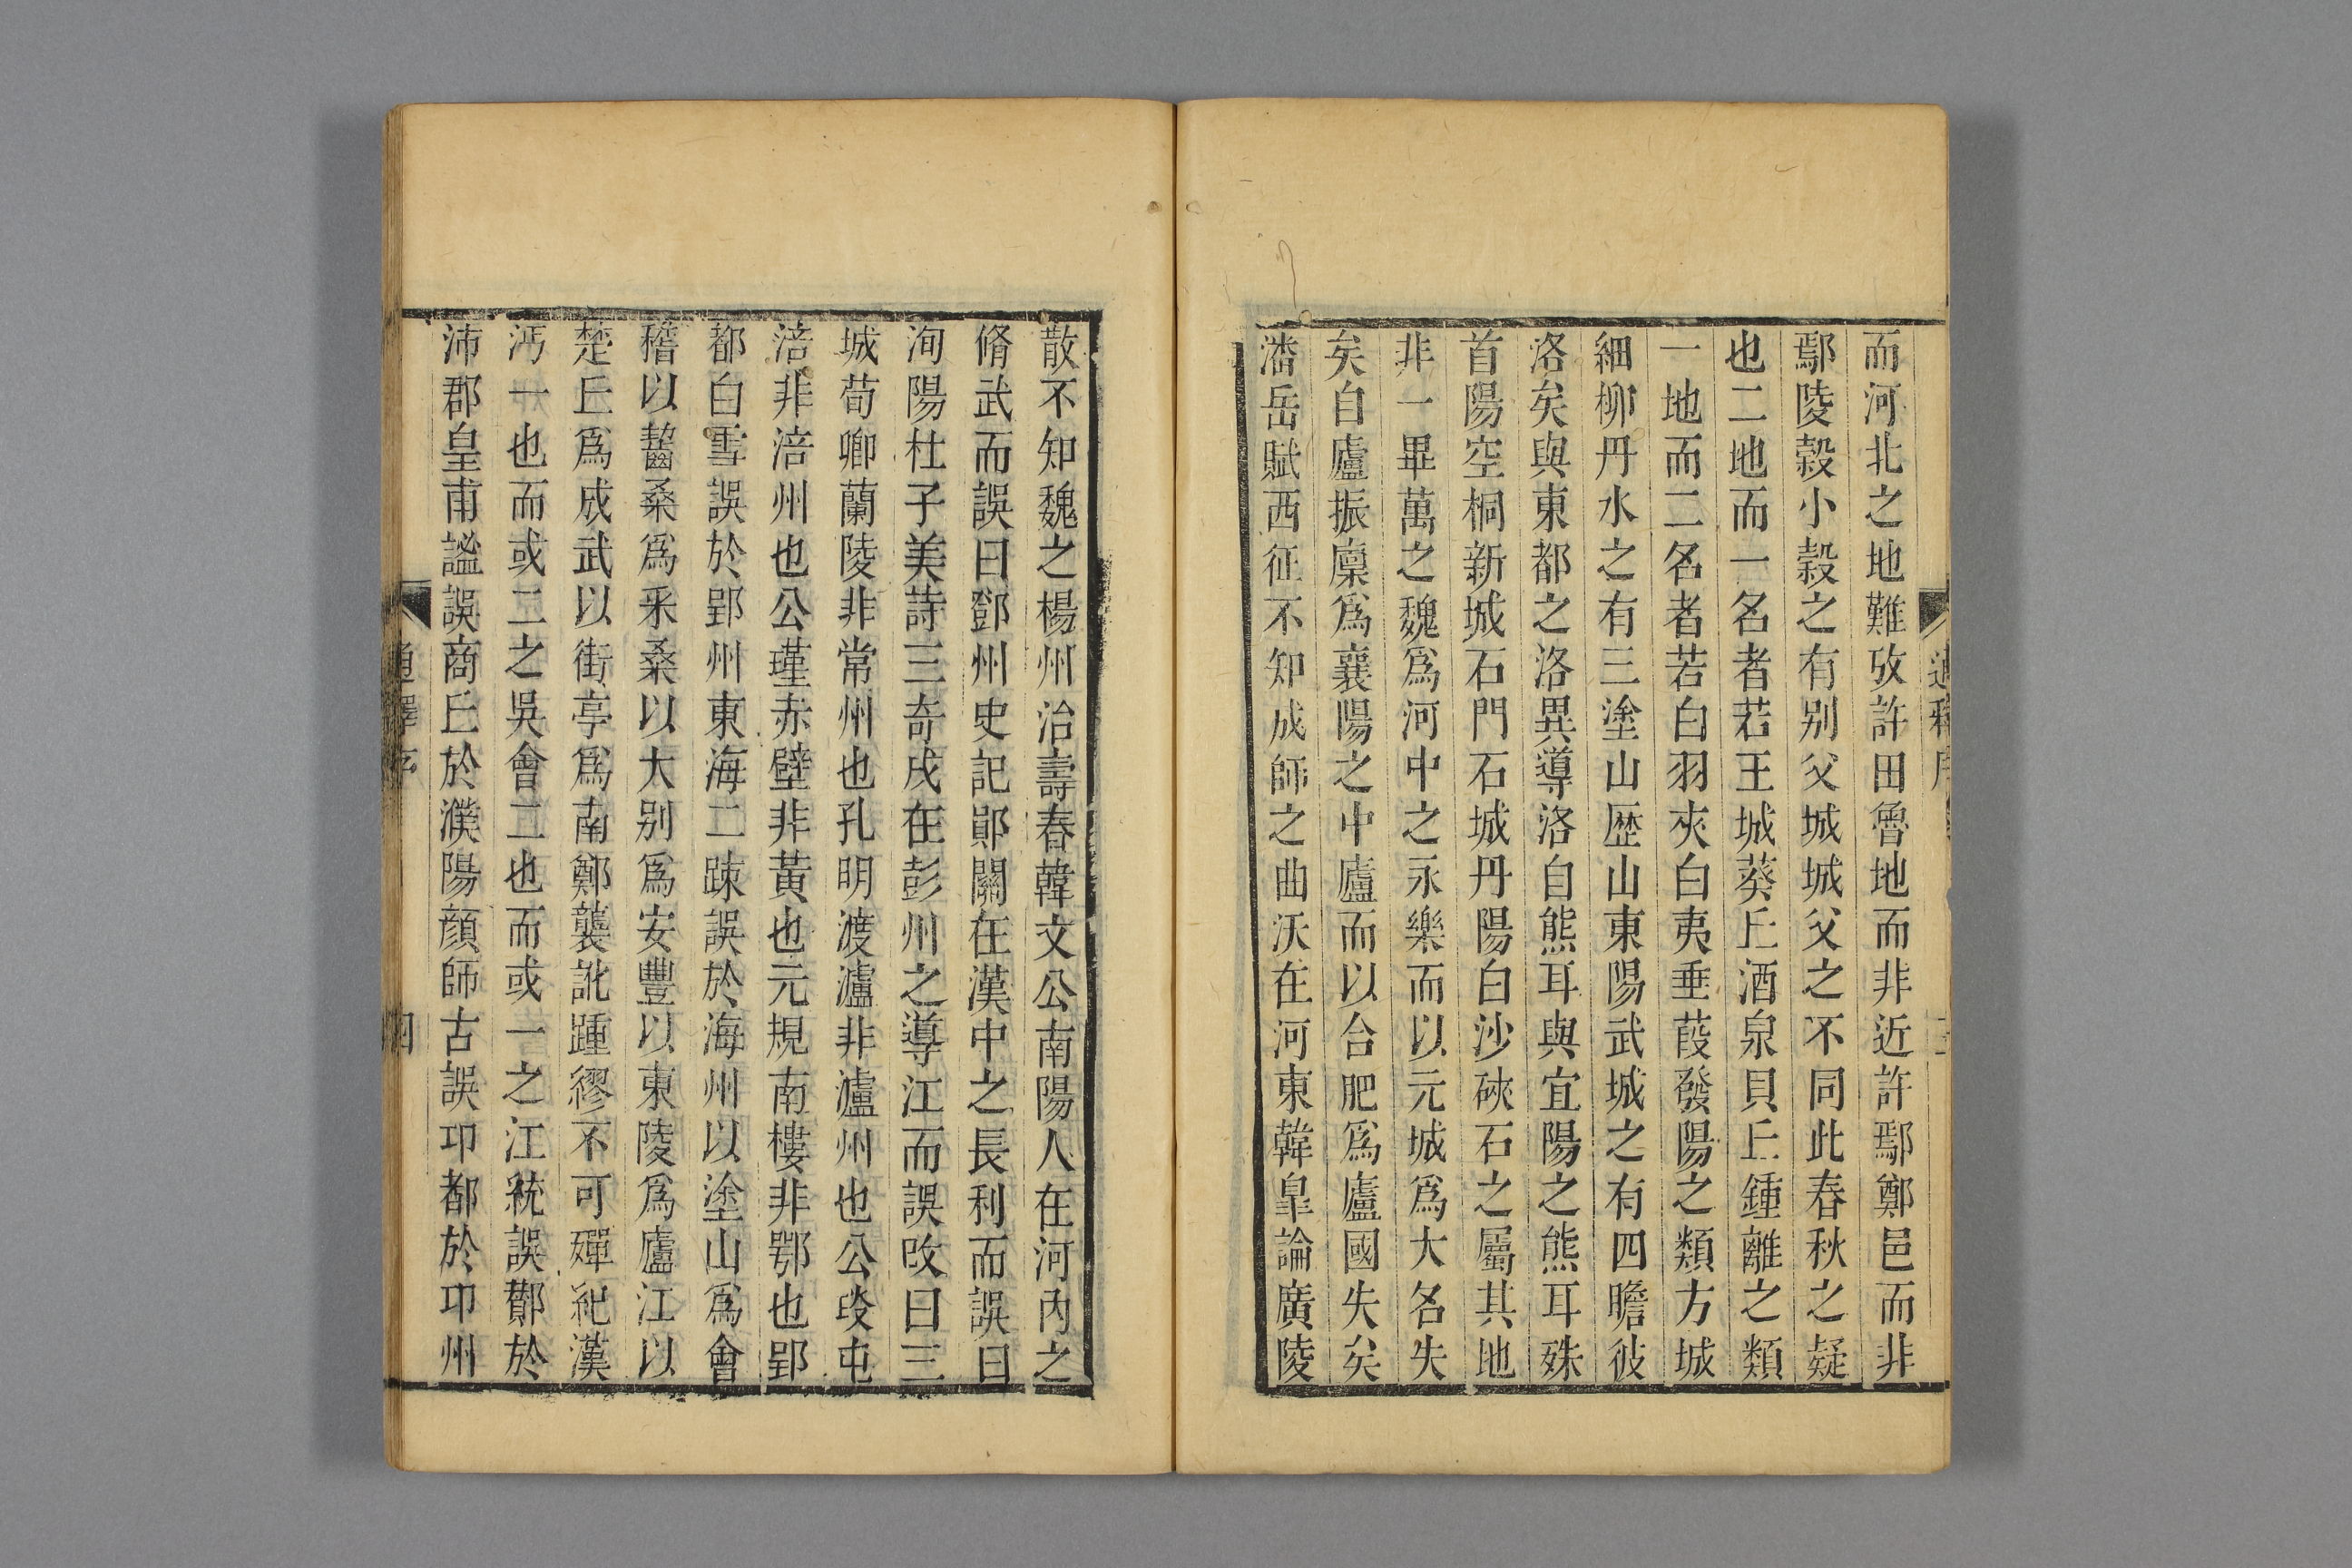 而河北之地難攷許田魯地而非近許鄢鄭邑而非
鄢陵穀小穀之有別父城城父之不同此春秋之疑
也二地而一名者若王城葵丘酒泉貝丘鍾離之類
一地而二名者若白羽夾白夷垂葭發陽之類方城
細柳丹水之有三塗山歴山東陽武城之有四瞻彼
洛矣與東都之洛異導洛自熊耳與宜陽之熊耳殊
首陽空桐新城石門石城丹陽白沙硤石之屬其地
非一畢萬之魏爲河中之永樂而以元城爲大名失
矣自廬振廩爲襄陽之中廬而以合肥爲廬國失矣
潘岳賦西征不知成師之曲沃在河東韓皐論廣陵
散不知魏之楊州治壽春韓文公南陽人在河內之
脩武而誤曰鄧州史記鄖關在漢中之長利而誤曰
洵陽杜子美詩三奇戍在彭州之導江而誤攺曰三
城荀卿蘭陵非常州也孔明渡瀘非瀘州也公孫屯
涪非涪州也公瑾赤壁非黃也元規南樓非鄂也郢
都白雪誤於郢州東海二疎誤於海州以塗山爲會
稽以齧桑爲采桑以大別爲安豐以東陵爲廬江以
楚丘爲成武以街亭爲南鄭襲訛踵繆不可殫紀漢
沔一也而或二之吳會二也而或一之江統誤酈於
沛郡皇甫謐誤商丘於濮陽顏師古誤邛都於邛州
通釋序
四